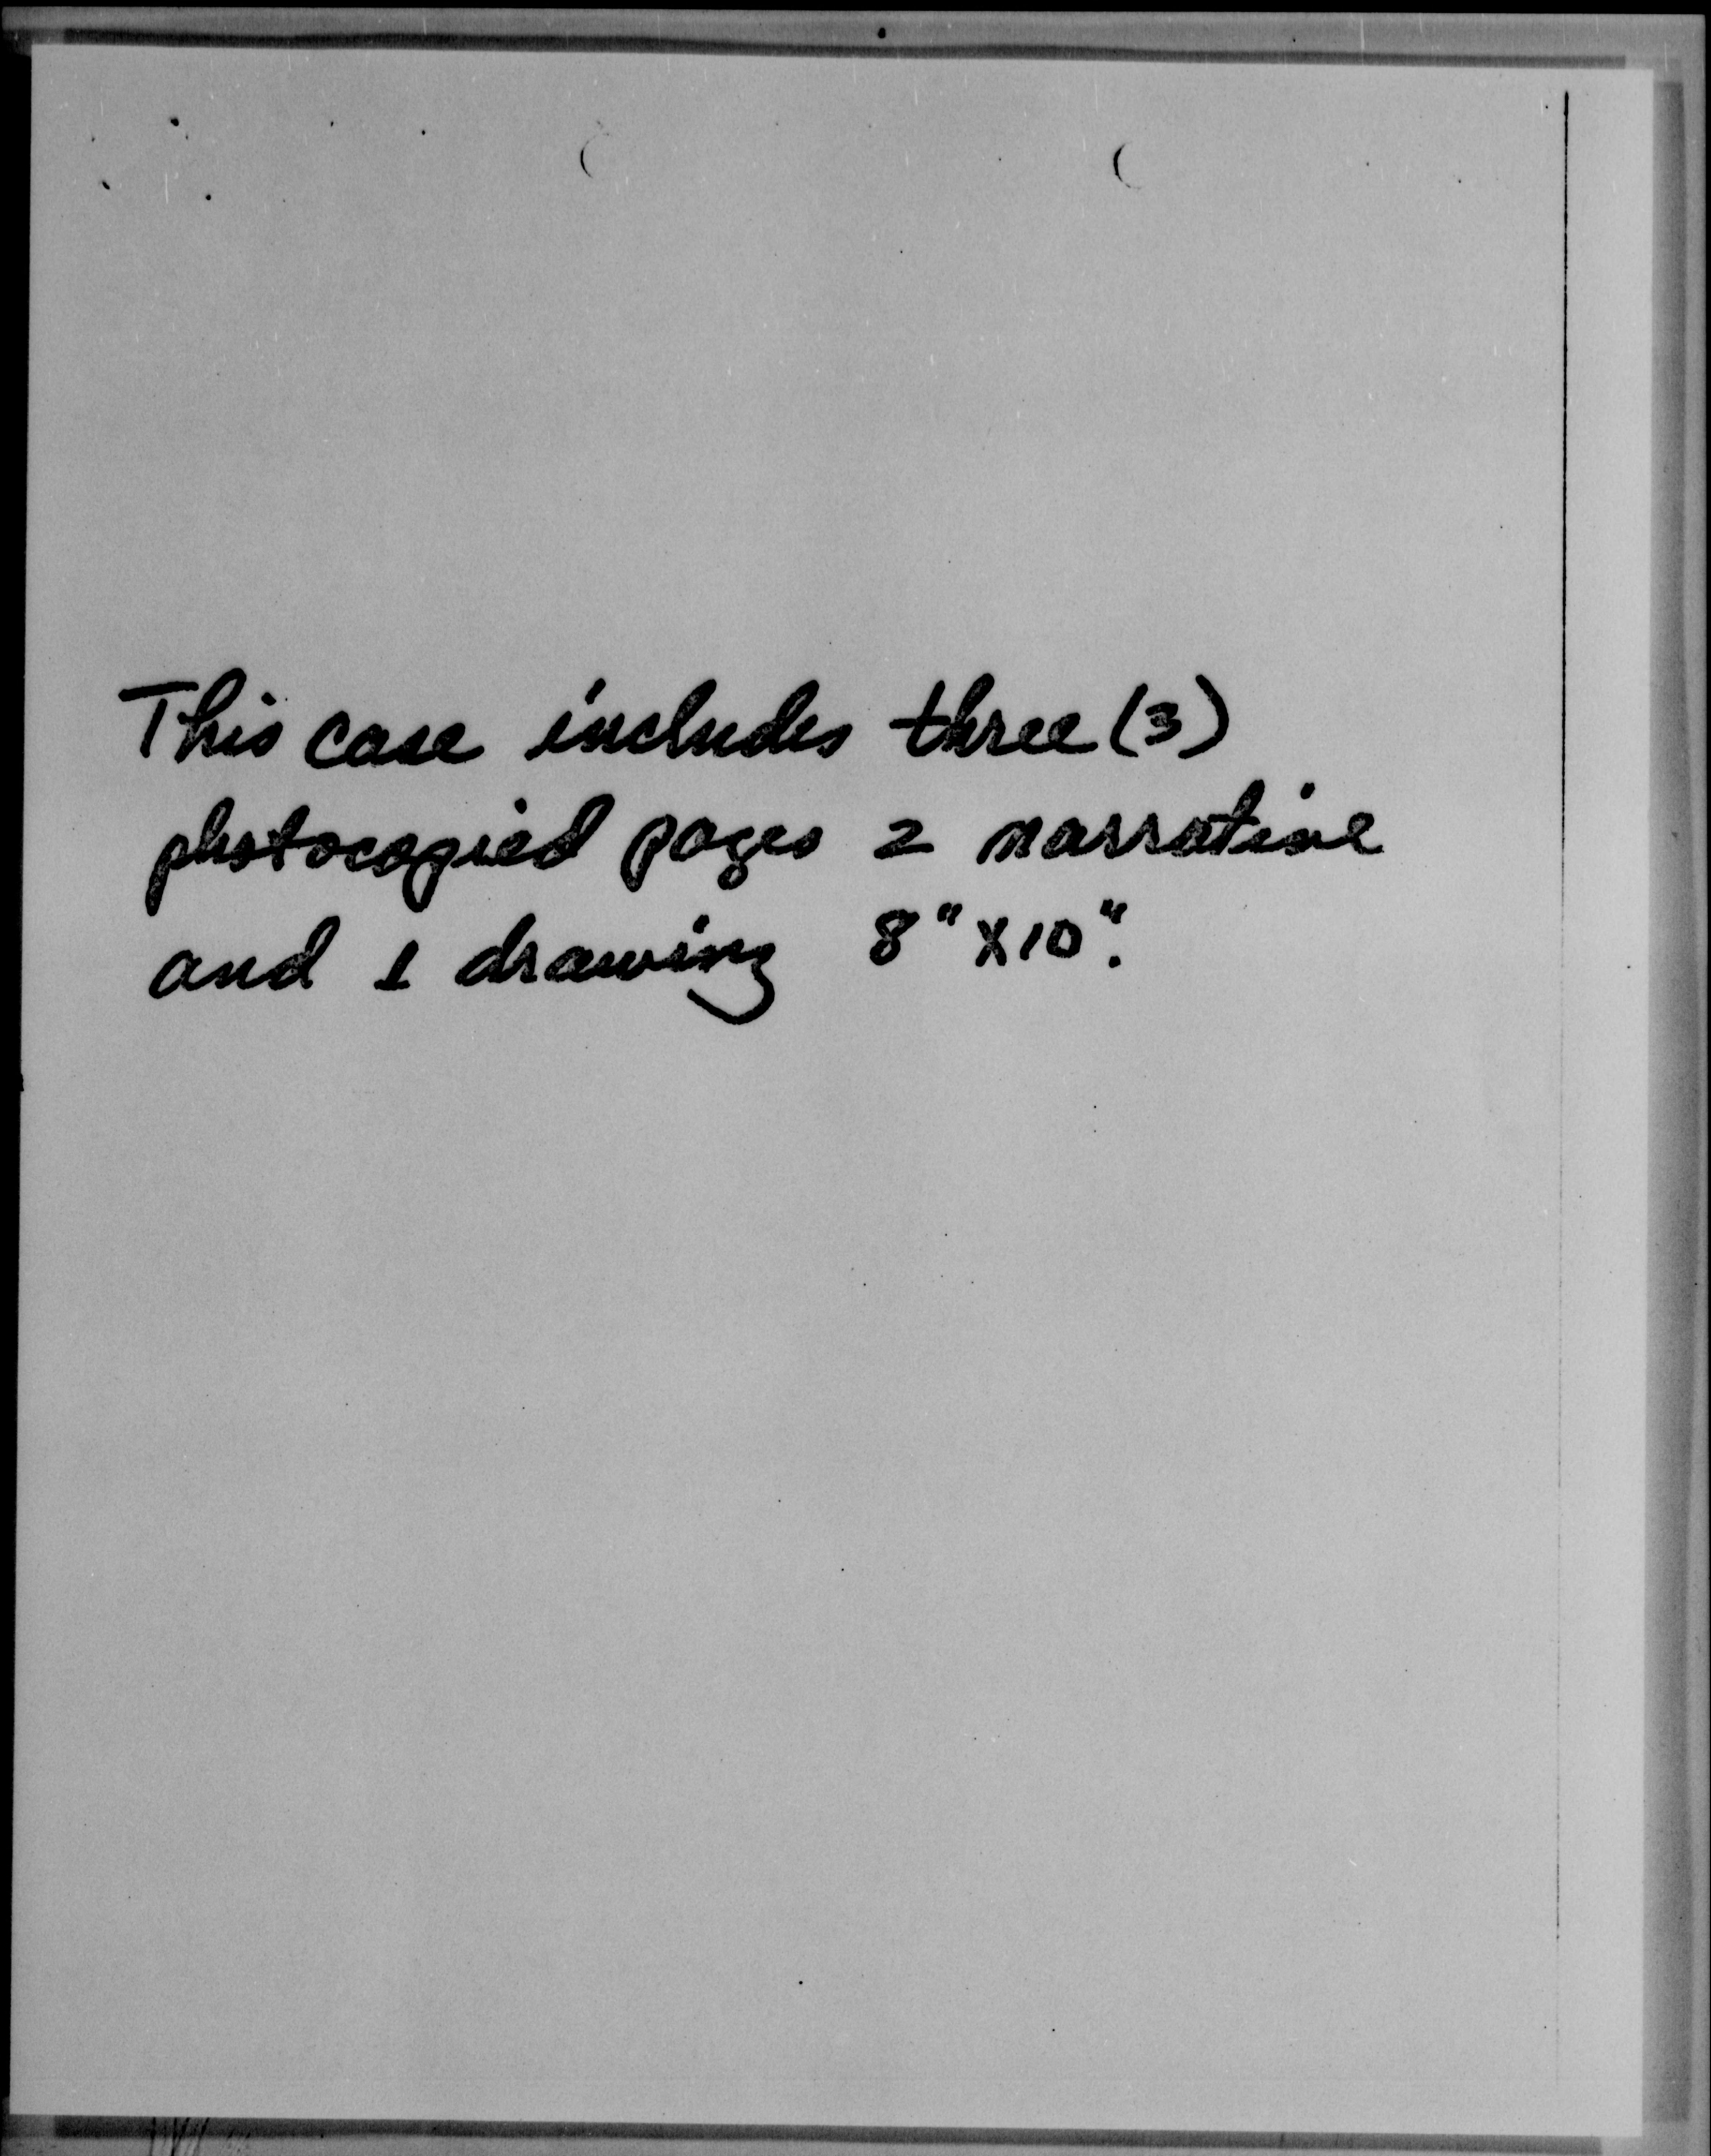 This case includes three (3)
photocopied pages 2 narrative
and 1 drawing 8" x 10".